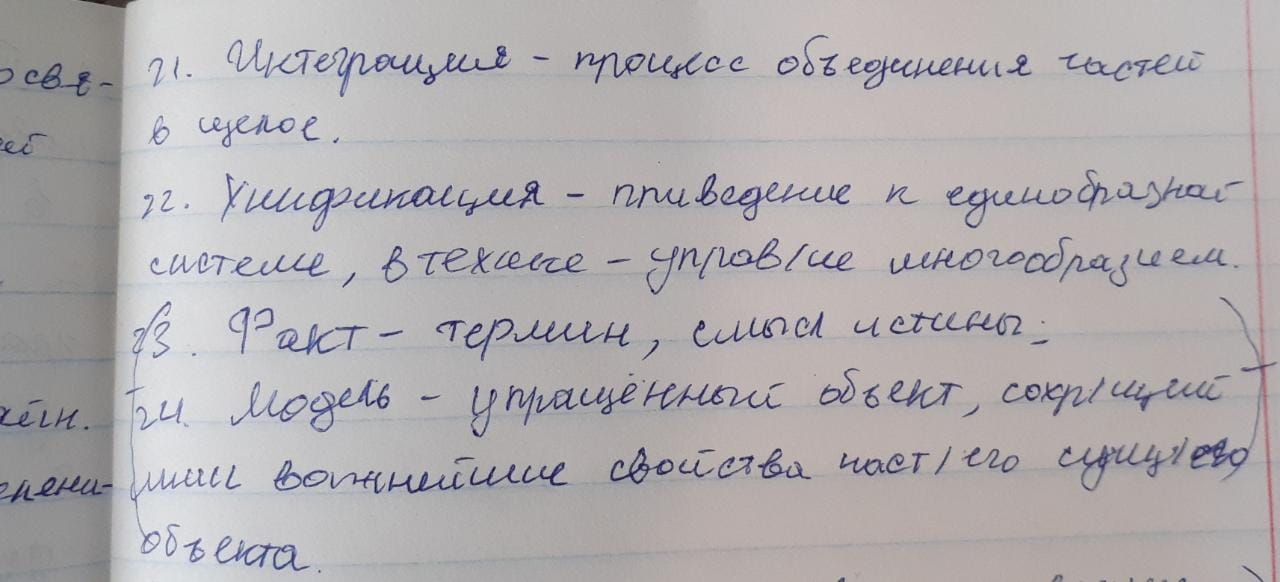 освя-
ей
21. Интеграция - процесс объединения частей
в целое.
22. Унификация - приведение к единобразной
системе, в технике - управ/ие многообразием.
23. Факт - термин, смысл истины.
айн.
24. Модель - упращённый объект, сохр/щий
пени-
лиш важнейшие свойства наст/его сущ/его
объекта.